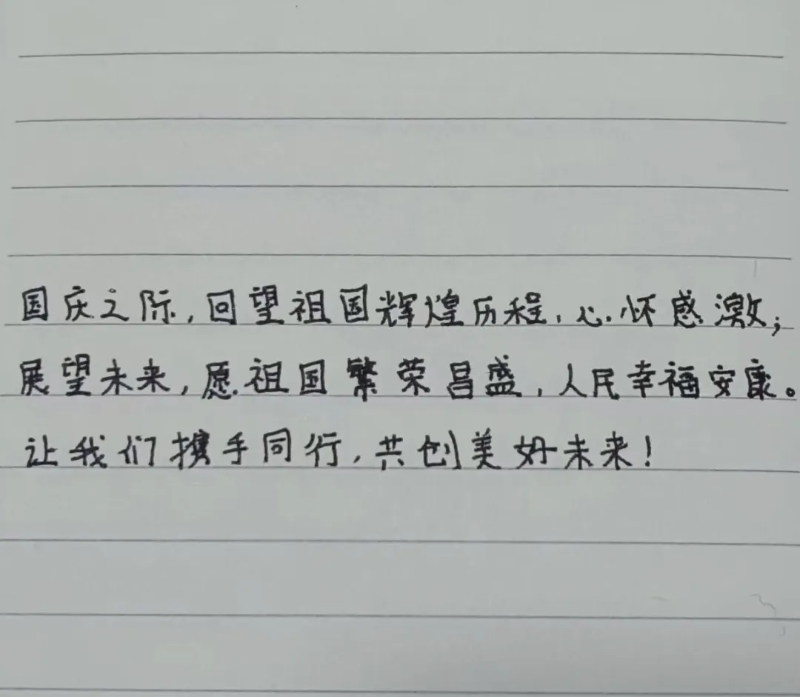 国庆之际,回望祖国辉煌历程,心怀感激;
展望未来,愿祖国繁荣昌盛,人民幸福安康。
让我们携手同行,共创美好未来!